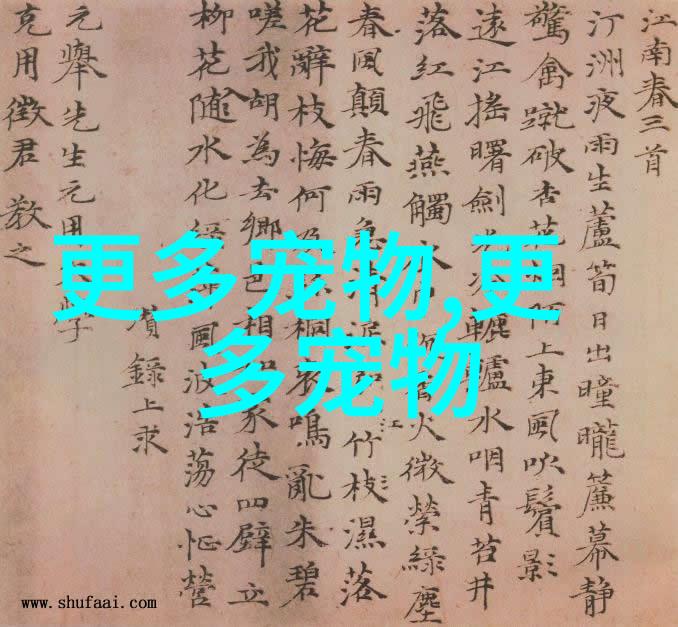 江南春三首
汀洲夜雨生蘆筍日出曈曨簾幕靜
驚禽蹴破杏花陌上東風吹鬢影
遠江搖曙劍轆轤水咽青苔井
落紅飛燕觸火微縈綠塵
春風顛春雨急清江竹枝濕落
花辭枝悔何桐哀鳴亂朱碧
嗟我胡為去鄉邑相家徒四壁立
柳花隨水化綠風波浩蕩心怔營
瓚錄上求
元舉先生元用學
克用徵君教之
更多宠物,更
多宠物
www.shufaai.com